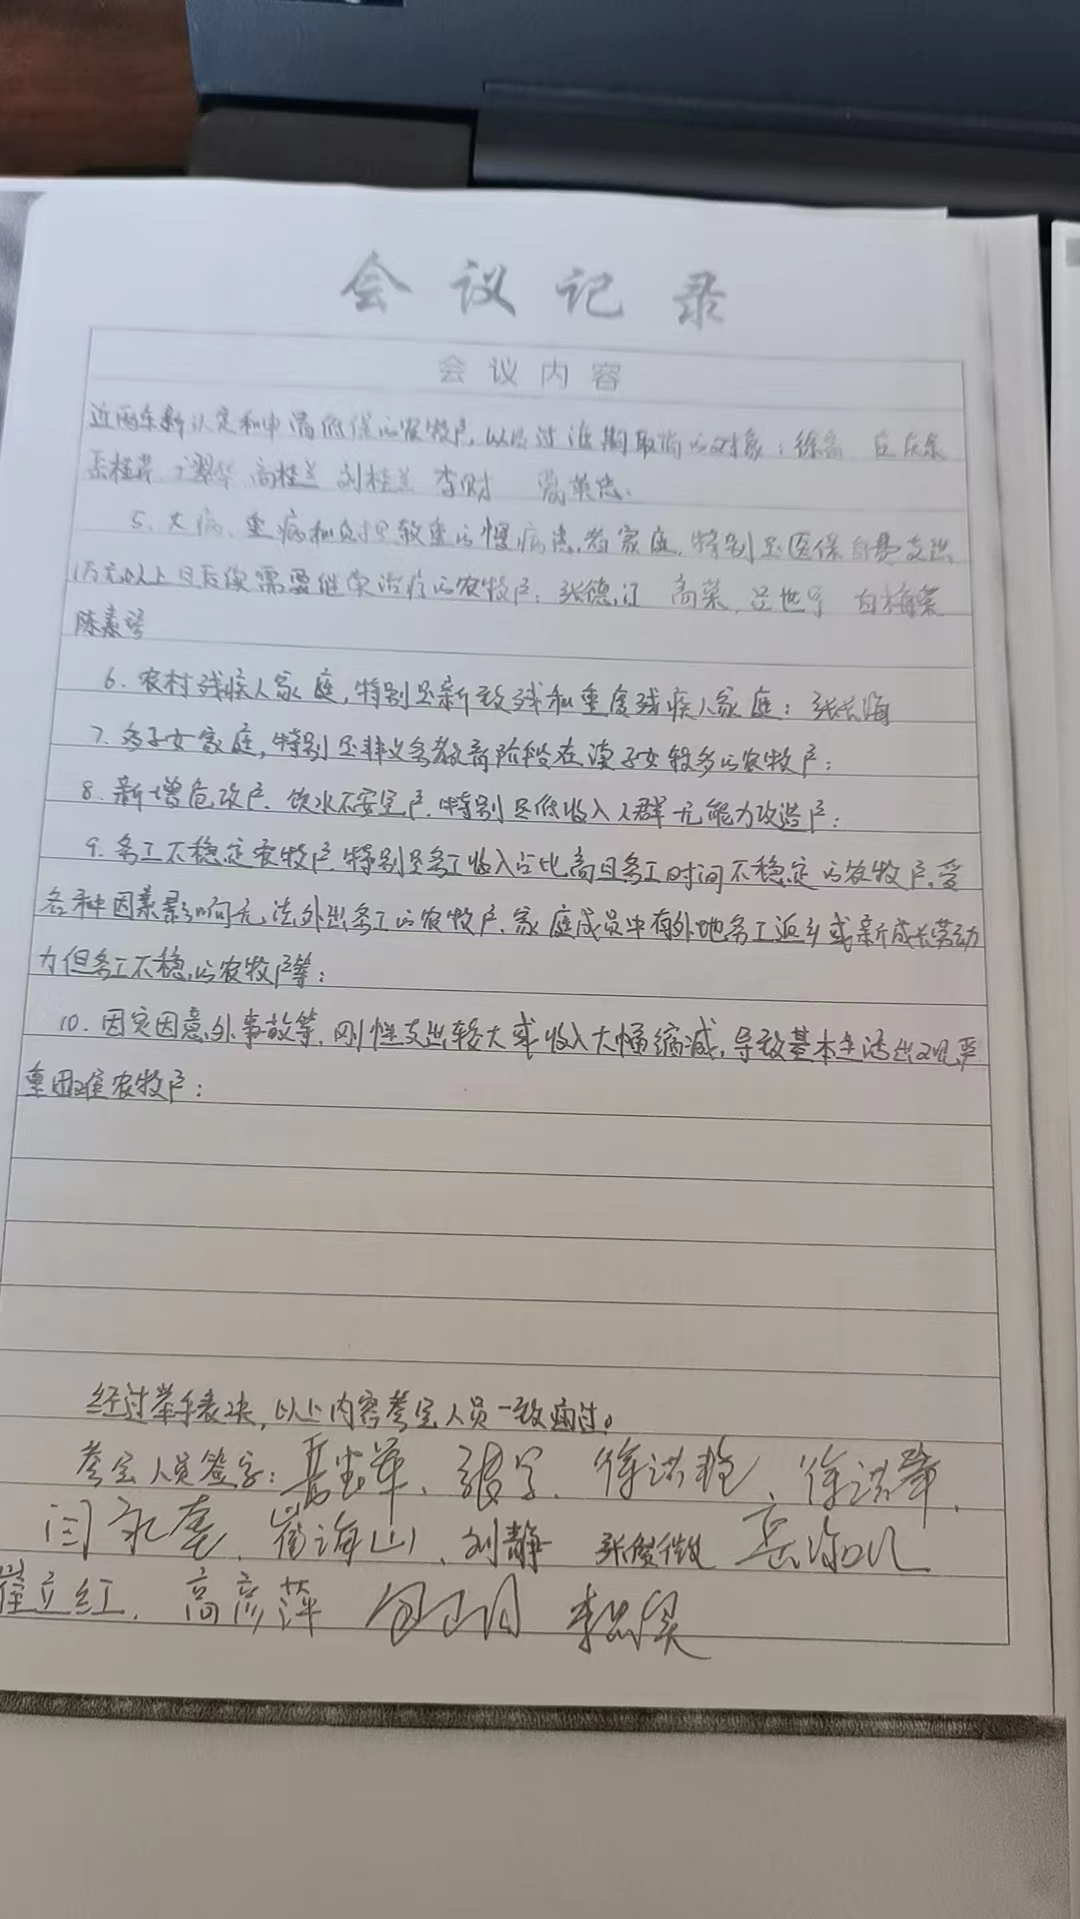 会议记录
会议内容
近两年新认定和申请低保的农牧户,以及过渡期取消的对象:徐
高桂兰 刘桂兰 李财
5.大病、重病和负担较重的慢病患者家庭,特别是医保自费支出
1万元以上且后续需要继续治疗的农牧户:张德江 高荣 吕世军 白梅荣
陈素琴
6.农村残疾人家庭,特别是新致残和重度残疾人家庭:张长海
7.多子女家庭,特别是非义务教育阶段在读子女较多的农牧户:
8.新增危改户、饮水不安全户,特别是低收入人群无能力改造户:
9.务工不稳定农牧户,特别是务工收入占比高且务工时间不稳定的农牧户,受
各种因素影响无法外出务工的农牧户、家庭成员中有外地务工返乡或新成长劳动
力但务工不稳的农牧户等:
10.因灾因意外事故等,刚性支出较大或收入大幅缩减,导致基本生活出现严
重困难农牧户:
经过举手表决,以上内容参会人员一致通过。
参会人员签字: 徐洪艳、徐洪
闫永 崔海山、刘静 张俊微
崔立红、高彦萍